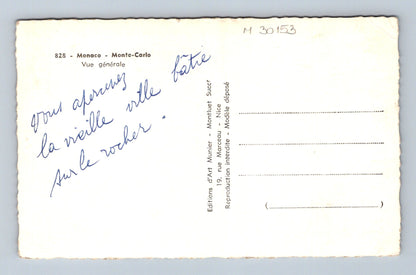 M 30153
828 - Monaco - Monte-Carlo
Vue générale
vous apercevez
la vieille ville bâtie
sur le rocher.
Editions d'Art Munier - Montluet Succr
19, rue Marceau - Nice
Reproduction interdite - Modèle déposé